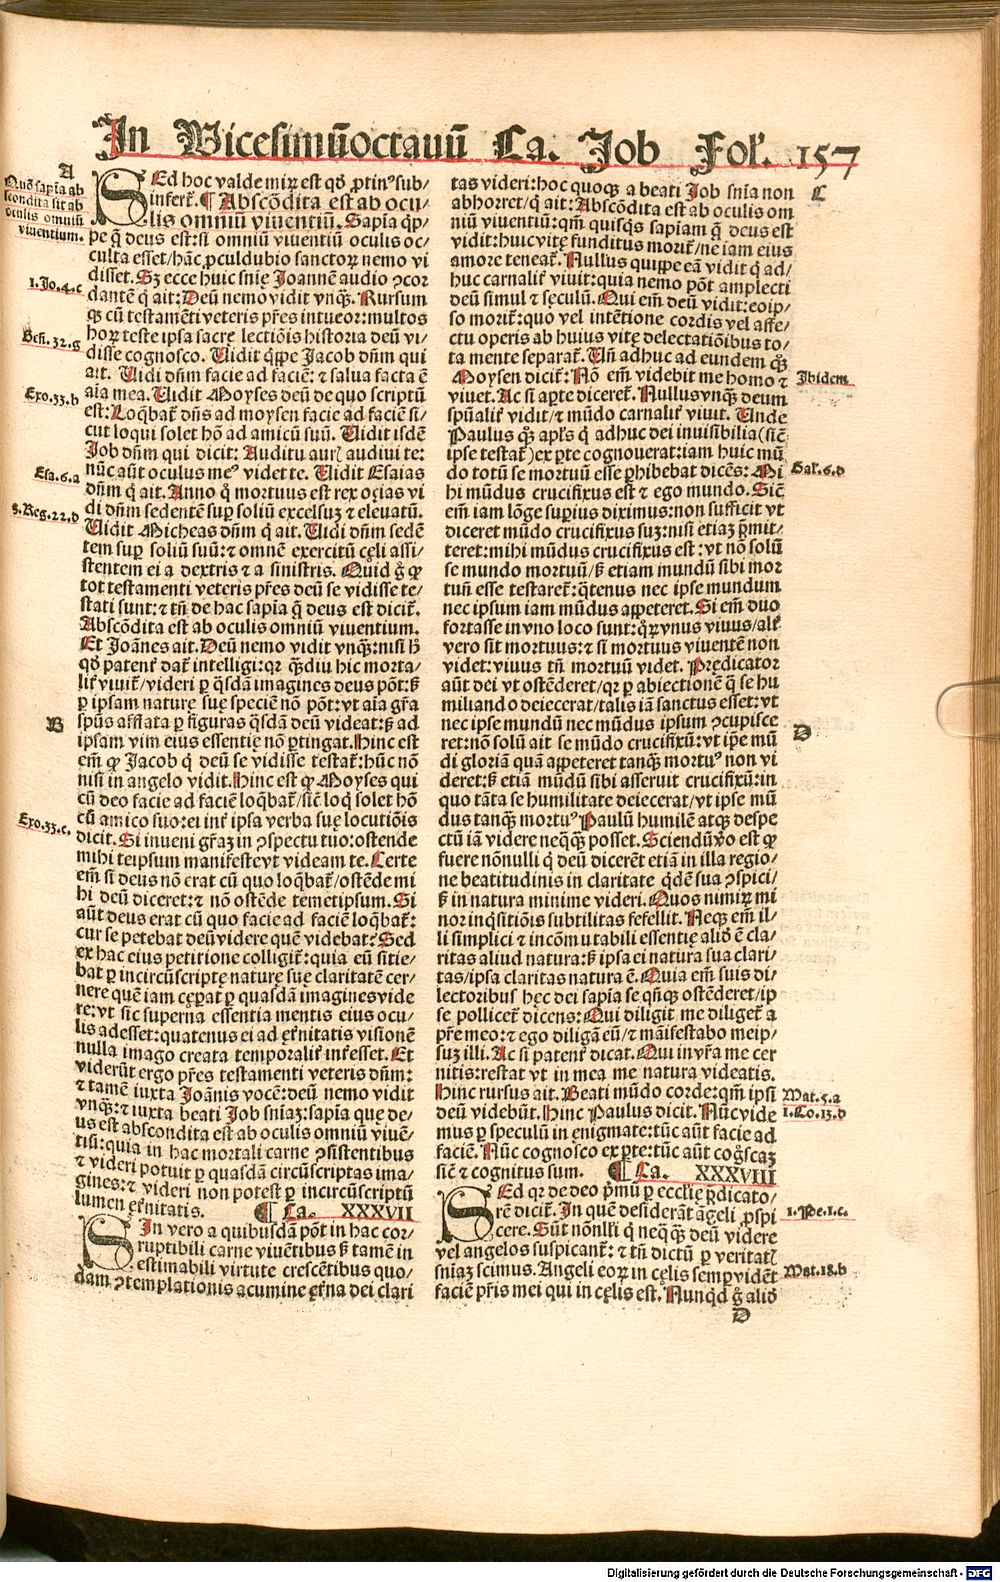 In Vicesimūoctauū Ca. Job Fol̕. 157
A
Quō sapīa ab
scondita sit ab
oculis omniū
viuentium.
SEd hoc valde mirꝝ est qd̕ ꝓtinꝰ sub/
infert̕. ¶ Abscōdita est ab ocu/
lis omniū viuentiū. Sapīa q̄p/
pe q̄ deus est: si omniū viuentiū oculis oc/
culta esset/hāc ꝓculdubio sanctoꝝ nemo vi
disset. Sꝫ ecce huic snīe Joannē audio ꝯcor
dantē q̇ ait: Deū nemo vidit vnqꝫ. Rursum
qꝫ cū testamēti veteris p̄res intueor: multos
hoꝝ teste ipsa sacrę lectiōis historia deū vi/
disse cognosco. Vidit q̄ppe Jacob dn̄m qui
ait. Vidi dn̄m facie ad faciē: ⁊ salua facta ē
aīa mea. Vidit Moyses deū de quo scriptū
est: Loq̄bat̕ dn̄s ad moysen facie ad faciē si/
cut loqui solet hō ad amicū suū. Vidit isdē
Job dn̄m qui dicit: Auditu aurꝭ audiui te:
nūc aūt oculus meꝰ videt te. Vidit Esaias
dn̄m q̇ ait. Anno q̇ mortuus est rex oȥias vi
di dn̄m sedentē suꝑ soliū excelsuȝ ⁊ eleuatū.
Vidit Micheas dn̄m q̇ ait. Vidi dn̄m sedē
tem suꝑ soliū suū: ⁊ omnē exercitū cęli assi/
stentem ei a dextris ⁊ a sinistris. Quid g̊ ꝙ
tot testamenti veteris p̄res deū se vidisse te/
stati sunt: ⁊ tn̄ de hac sapīa q̄ deus est dicit̕.
Abscōdita est ab oculis omniū viuentium.
Et Joānes ait. Deū nemo vidit vnqꝫ: nisi hͦ
qd̕ patent̕ dat̕ intelligi: qꝛ qꝫdiu hic morta/
lit̕ viuit̕/videri ꝑ q̄sdā imagines deus pōt: ß
ꝑ ipsam nature suę speciē nō pōt: vt aīa gr̄a
spūs afflata ꝑ figuras q̄sdā deū videat: ß ad
ipsam vim eius essentię nō ꝑtingat. Hinc est
em̄ ꝙ Jacob q̇ deū se vidisse testat̕: hūc nō
nisi in angelo vidit. Hinc est ꝙ Moyses qui
cū deo facie ad faciē loq̄bat̕/sic̄ loq̇ solet hō
cū amico suo: ei int̕ ipsa verba suę locutiōis
dicit. Si inueni gr̄aȝ in ꝯspectu tuo: ostende
mihi teipsum manifeste vt videam te. Certe
em̄ si deus nō erat cū quo loq̄bat̕/ostēde mi
hi deū diceret: ⁊ nō ostēde temetipsum. Si
aūt deus erat cū quo facie ad faciē loq̄bat̕:
cur se petebat deū videre quē videbat? Sed
ex hac eius petitione colligit̕: quia eū sitie/
bat ꝑ incircūscriptę naturę suę claritatē cer/
nere quē iam cęꝑat ꝑ quasdā imagines vide
re: vt sic̄ superna essentia mentis eius ocu/
lis adesset: quatenus ei ad et̕nitatis visionē
nulla imago creata temporalit̕ int̕esset. Et
viderūt ergo p̄res testamenti veteris dn̄m:
⁊ tamē iuxta Joānis vocē: deū nemo vidit
vnqꝫ: ⁊ iuxta beati Job sniaȝ: sapīa que de/
us est abscondita est ab oculis omniū viuē/
tiū: quia in hac mortali carne ꝯsistentibus
⁊ videri potuit ꝑ quasdā circūscriptas ima/
gines: ⁊ videri non potest ꝑ incircūscriptū
lumen et̕nitatis. ¶ Ca. XXXVII
SIn vero a quibusdā pōt in hac cor/
ruptibili carne viuētibus ß tamē in
estimabili virtute crescētibus quo/
dam ꝯtemplationis acumine et̕na dei clari
1.Jo.4.c
Gen̄.32.g
Exo.33.b
Esa.6.a
3.Reg.22.d
B
Exo.33.c.
tas videri: hoc quoqꝫ a beati Job snīa non
abhorret/q̇ ait: Abscōdita est ab oculis om
niū viuentiū: qm̄ quisqs̄ sapiam q̄ deus est
vidit: huic vitę funditus morit̕/ne iam eius
amore teneat̕. Nullus quippe eā vidit q̇ ad/
huc carnalit̕ viuit: quia nemo pōt amplecti
deū simul ⁊ sęculū. Qui em̄ deū vidit: eoip/
so morit̕: quo vel intētione cordis vel affe/
ctu operis ab huius vitę delectatiōibus to/
ta mente separat̕. Vn̄ adhuc ad eundem qꝫ
Moysen dicit̕: Nō em̄ videbit me homo ⁊
viuet. Ac si aꝑte diceret̕. Nullus vnqꝫ deum
spūalit̕ vidit/⁊ mūdo carnalit̕ viuit. Vnde
Paulus qꝫ apl̕s q̇ adhuc dei inuisibilia (sic̄
ipse testat̕) ex ꝑte cognouerat: iam huic mū
do totū se mortuū esse ꝑhibebat dicēs: Mi
hi mūdus crucifixus est ⁊ ego mundo. Sic̄
em̄ iam lōge suꝑius diximus: non sufficit vt
diceret mūdo crucifixus suȝ: nisi etiaȝ p̄mit/
teret: mihi mūdus crucifixus est: vt nō solū
se mundo mortuū/ß etiam mundū sibi mor
tuū esse testaret̕: q̄tenus nec ipse mundum
nec ipsum iam mūdus appeteret. Si em̄ duo
fortasse in vno loco sunt: qꝝ vnus viuus/alt̕
vero sit mortuus: ⁊ si mortuus viuentē non
videt: viuus tn̄ mortuū videt. Prędicator
aūt dei vt ostēderet/qꝛ ꝑ abiectionē q̄ se hu
miliando deiecerat/talis iā sanctus esset: vt
nec ipse mundū nec mūdus ipsum ꝯcupisce
ret: nō solū ait se mūdo crucifixū: vt ip̄e mū
di gloriā quā appeteret tanqꝫ mortuꝰ non vi
deret: ß etiā mūdū sibi asseruit crucifixū: in
quo tāta se humilitate deiecerat/vt ipse mū
dus tanqꝫ mortuꝰ Paulū humilē atqꝫ despe
ctū iā videre neqꝫqꝫ posset. Sciendū v̄o est ꝙ
fuere nōnulli q̇ deū dicerēt etiā in illa regio/
ne beatitudinis in claritate q̇dē sua ꝯspici/
ß in natura minime videri. Quos nimiꝝ mi
noꝛ inq̇sitiōis subtilitas fefellit. Neqꝫ em̄ il/
li simplici ⁊ incōmutabili essentię aliō ē cla/
ritas aliud natura: ß ipsa ei natura sua clari/
tas/ipsa claritas natura ē. Quia em̄ suis di/
lectoribus hęc dei sapīa se qn̄qꝫ ostēderet/ip
se pollicet̕ dicens: Qui diligit me diliget̕ a
p̄re meo: ⁊ ego diligā eū/⁊ māifestabo meip/
suȝ illi. Ac si patent̕ dicat. Qui in vr̄a me cer
nitis: restat vt in mea me natura videatis.
Hinc rursus ait. Beati mūdo corde: qm̄ ipsi
deū videbūt. Hinc Paulus dicit. Nūc vide
mus ꝑ speculū in enigmate: tūc aūt facie ad
faciē. Nūc cognosco ex ꝑte: tūc aūt cog̊scaȝ
sic̄ ⁊ cognitus sum. ¶ Ca. XXXVIII
SEd qꝛ de deo p̄mū ꝑ ecclīę p̄dicato/
rē dicit̕. In quē desiderāt āgeli ꝓspi
cere. Sūt nōnlli q̇ neq̄qꝫ deū videre
vel angelos suspicant̕: ⁊ tn̄ dictū ꝑ veritatꝭ
sniaȝ scimus. Angeli eoꝝ in cęlis semꝑ vidēt
faciē p̄ris mei qui in cęlis est. Nunqd̕ g̊ aliō
D
C
Ibidem
Gal̕.6.d
D
Mat.5.a
1.Co.13.d
1.Pe.1.c.
Mat.18.b
Digitalisierung gefördert durch die Deutsche Forschungsgemeinschaft - DFG